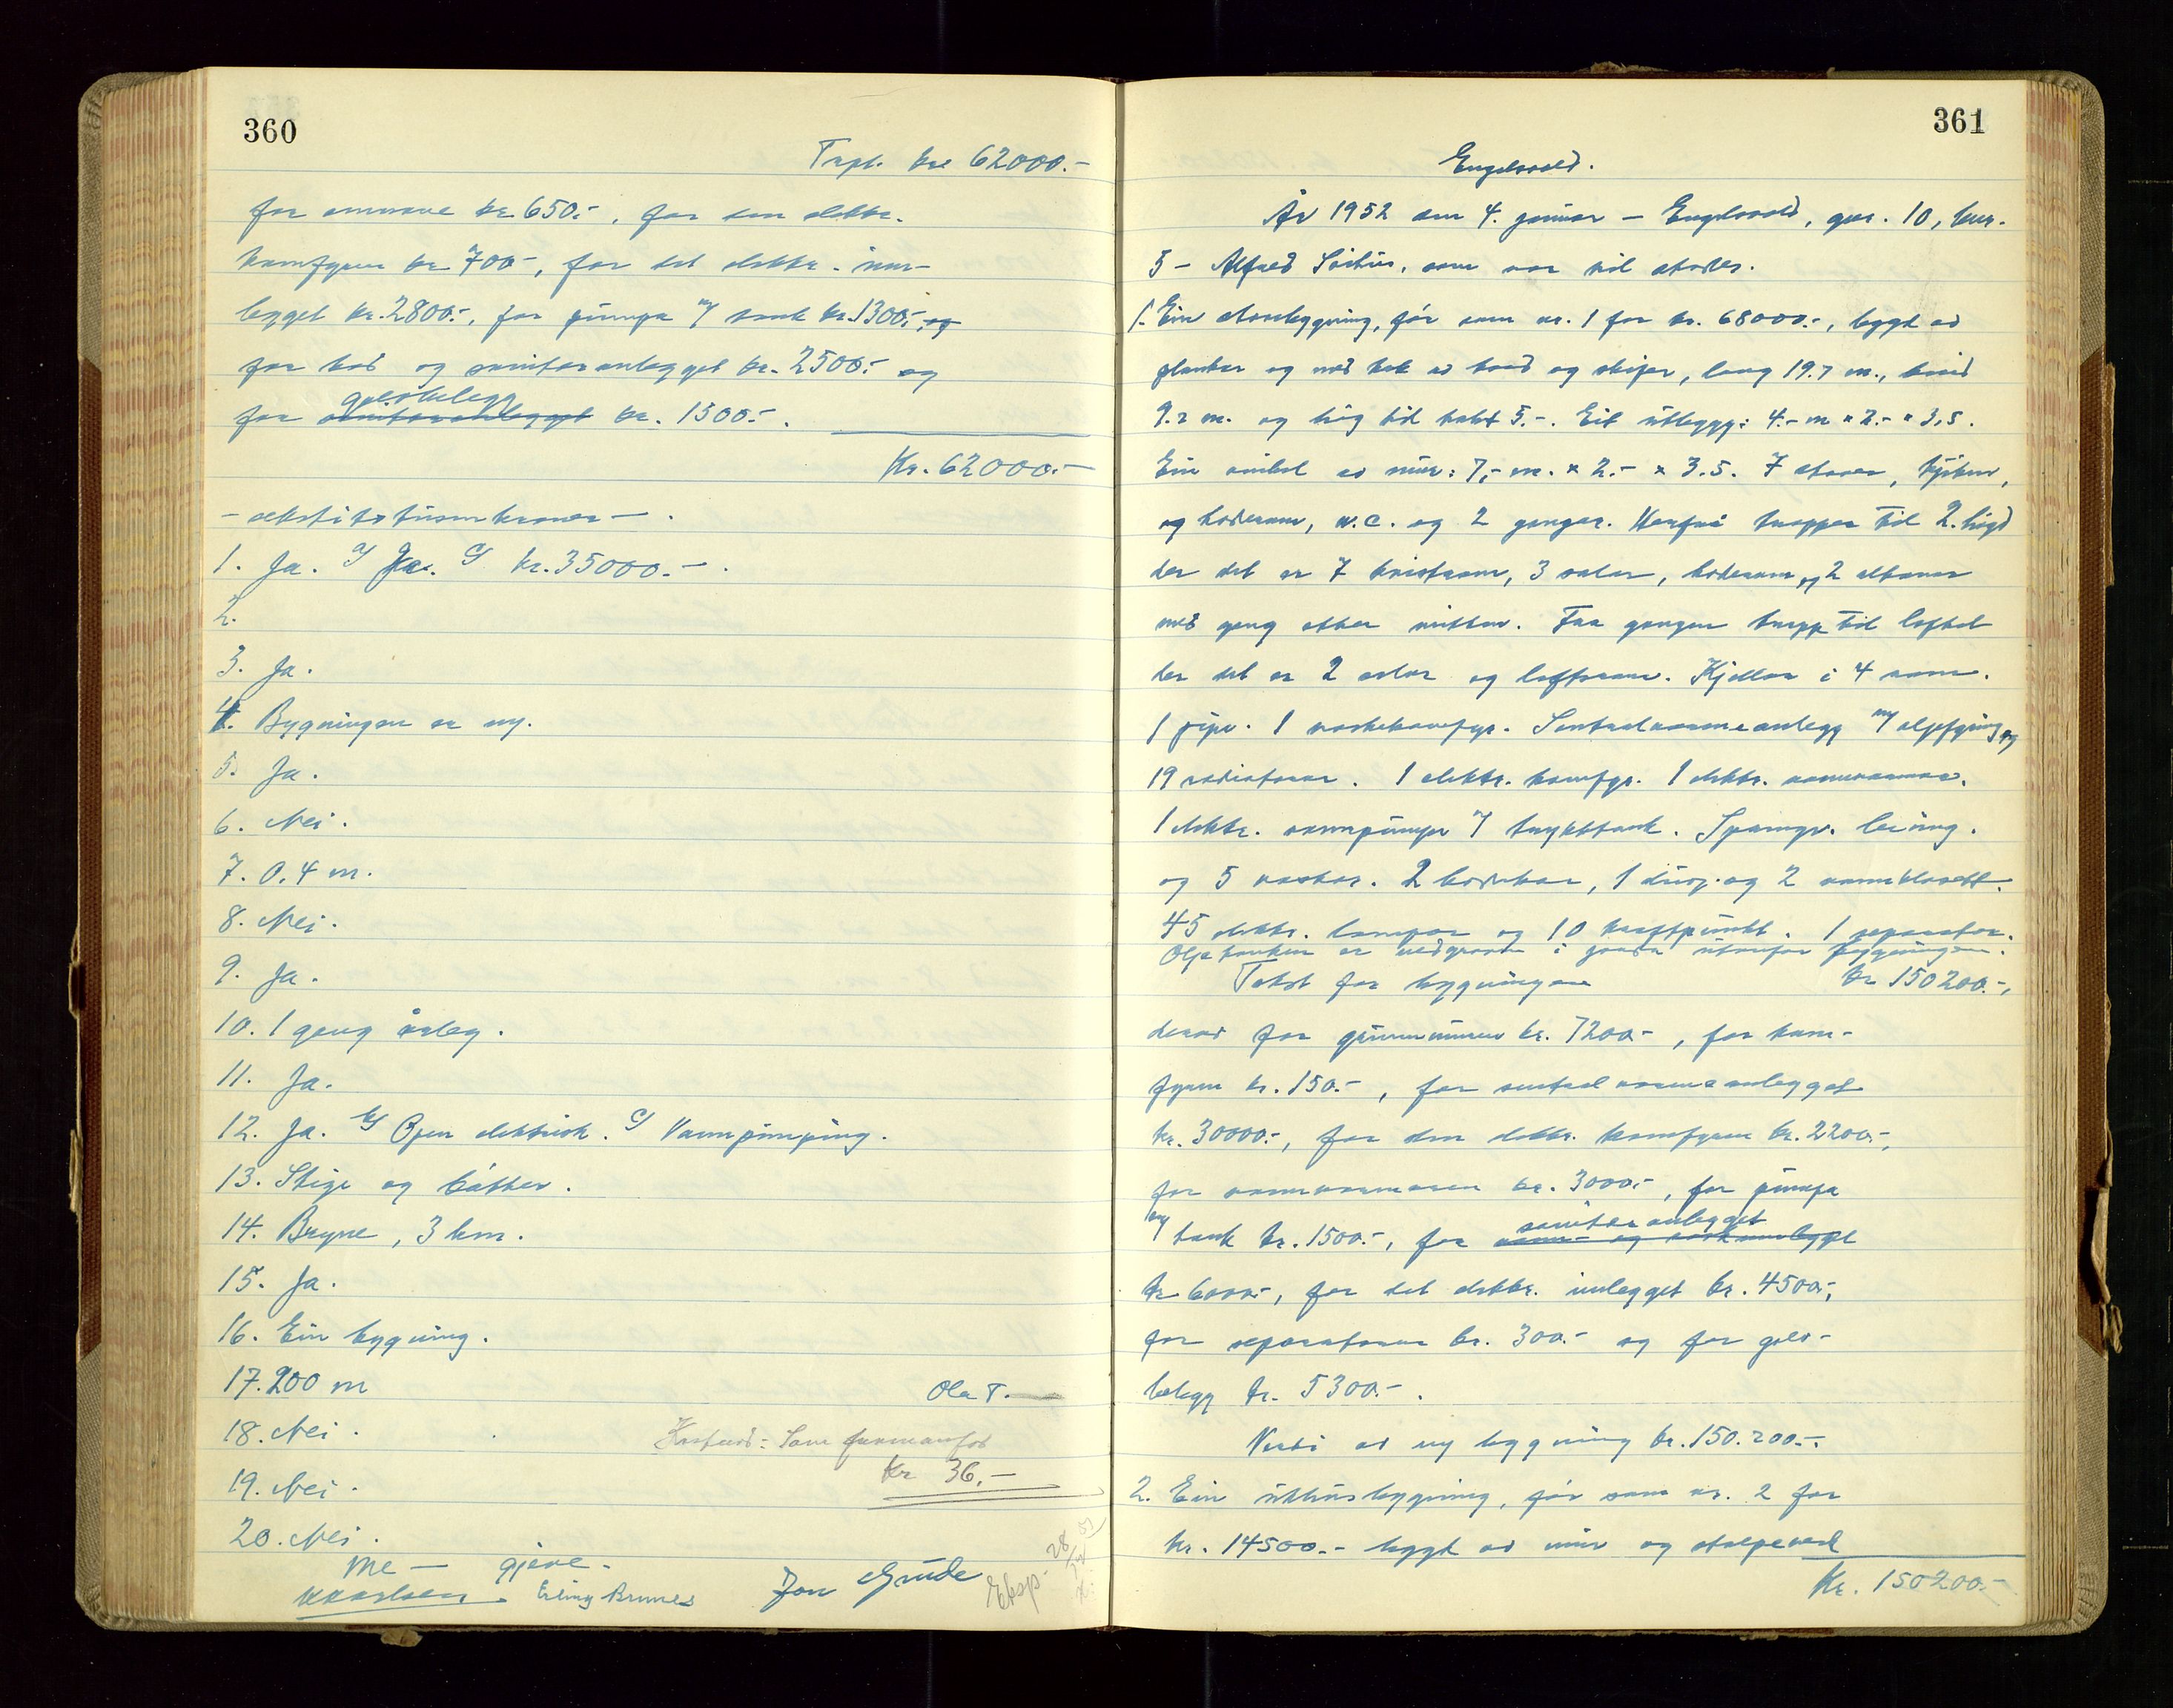 360
Trspt. kr. 62000.-
for omnane kr. 650.-, for den elektr.
komfyren kr. 700.-, for det elektr. inn-
legget kr. 2800.-, for pumpa m/ tank kr. 1300.-, og
for bad og sanitæranlegget kr. 2500.- og
golvbelegg
for sanitæranlegget kr. 1500.-.
Kr. 62000.-
- sekstitotusenkroner - .
1. Ja. b/ Ja. c/ kr. 35000.- .
2.
3. Ja.
4. Bygningen er ny.
5. Ja.
6. Nei.
7. 0.4 m.
8. Nei.
9. Ja.
10. 1 gang årleg.
11. Ja.
12. Ja. b/ Open elektrisk. c/ Vannpumping.
13. Stige og bøtter.
14. Bryne, 3 km.
15. Ja.
16. Ein bygning.
17. 200 m
Ola T.
18. Nei.
Kostnad: Som
Kr 36.-
19. Nei.
20. Nei.
Me — gjeve.
Erling Brunes Jon Grude
Eksp. 28
361
Engelsvold.
År 1952 den 4. januar - Engelsvold, gnr. 10, bnr.
5 - Alfred , som var til stades.
1. Ein stovebygning, før som nr. 1 for kr. 68000.-, bygt av
plankar og med tak av bord og skifer, lang 19.7 m., breid
9.2 m. og høg til taket 5.-. Eit utbygg: 4.- m × 2.- × 3,5.
Ein vinkel av mur: 7,- m. × 2.- × 3.5. 7 stover, kjøken,
og baderom, w.c. og 2 gangar. Herfrå trapper til 2. høgd
der det er 7 kvistrom, 3 salar, baderom og 2 altanar
med gang etter midten. Frå gangen trapp til loftet
der det er 2 salar og loftsrom. Kjellar i 4 rom.
1 pipe. 1 vaskekomfyr. Sentralvarmeanlegg m/ oljefyring og
19 radiatorar. 1 elektr. komfyr. 1 elektr. vannvarmar.
1 elektr. vannpumpe m/ trykktank. Springv. leidning.
og 5 vaskar. 2 badekar, 1 dusj og 2 vannklosett.
45 elektr. lampar og 10 kraftpunkt. 1 separator.
Oljetanken er nedgraven i jorda utanfor bygningen.
Takst for bygningen kr 150200.-,
derav for grunnmuren kr. 7200.-, for kom-
fyren kr. 150.-, for sentralvarmeanlegget
kr. 30000.-, for den elektr. komfyren kr. 2200.-,
for vannvarmaren kr. 3000.-, for pumpa
sanitæranlegget
m/ tank kr. 1500.-, for vann- og avløpsanlegget
kr 6000.-, for det elektr. innlegget kr. 4500.-,
for separatoren kr. 300.- og for golv-
belegg kr. 5300.- .
Verdi av ny bygning kr. 150.200.-.
2. Ein uthusbygning, før som nr. 2 for
kr. 14500.- bygt av mur og stolpeverk
Kr. 150200.-